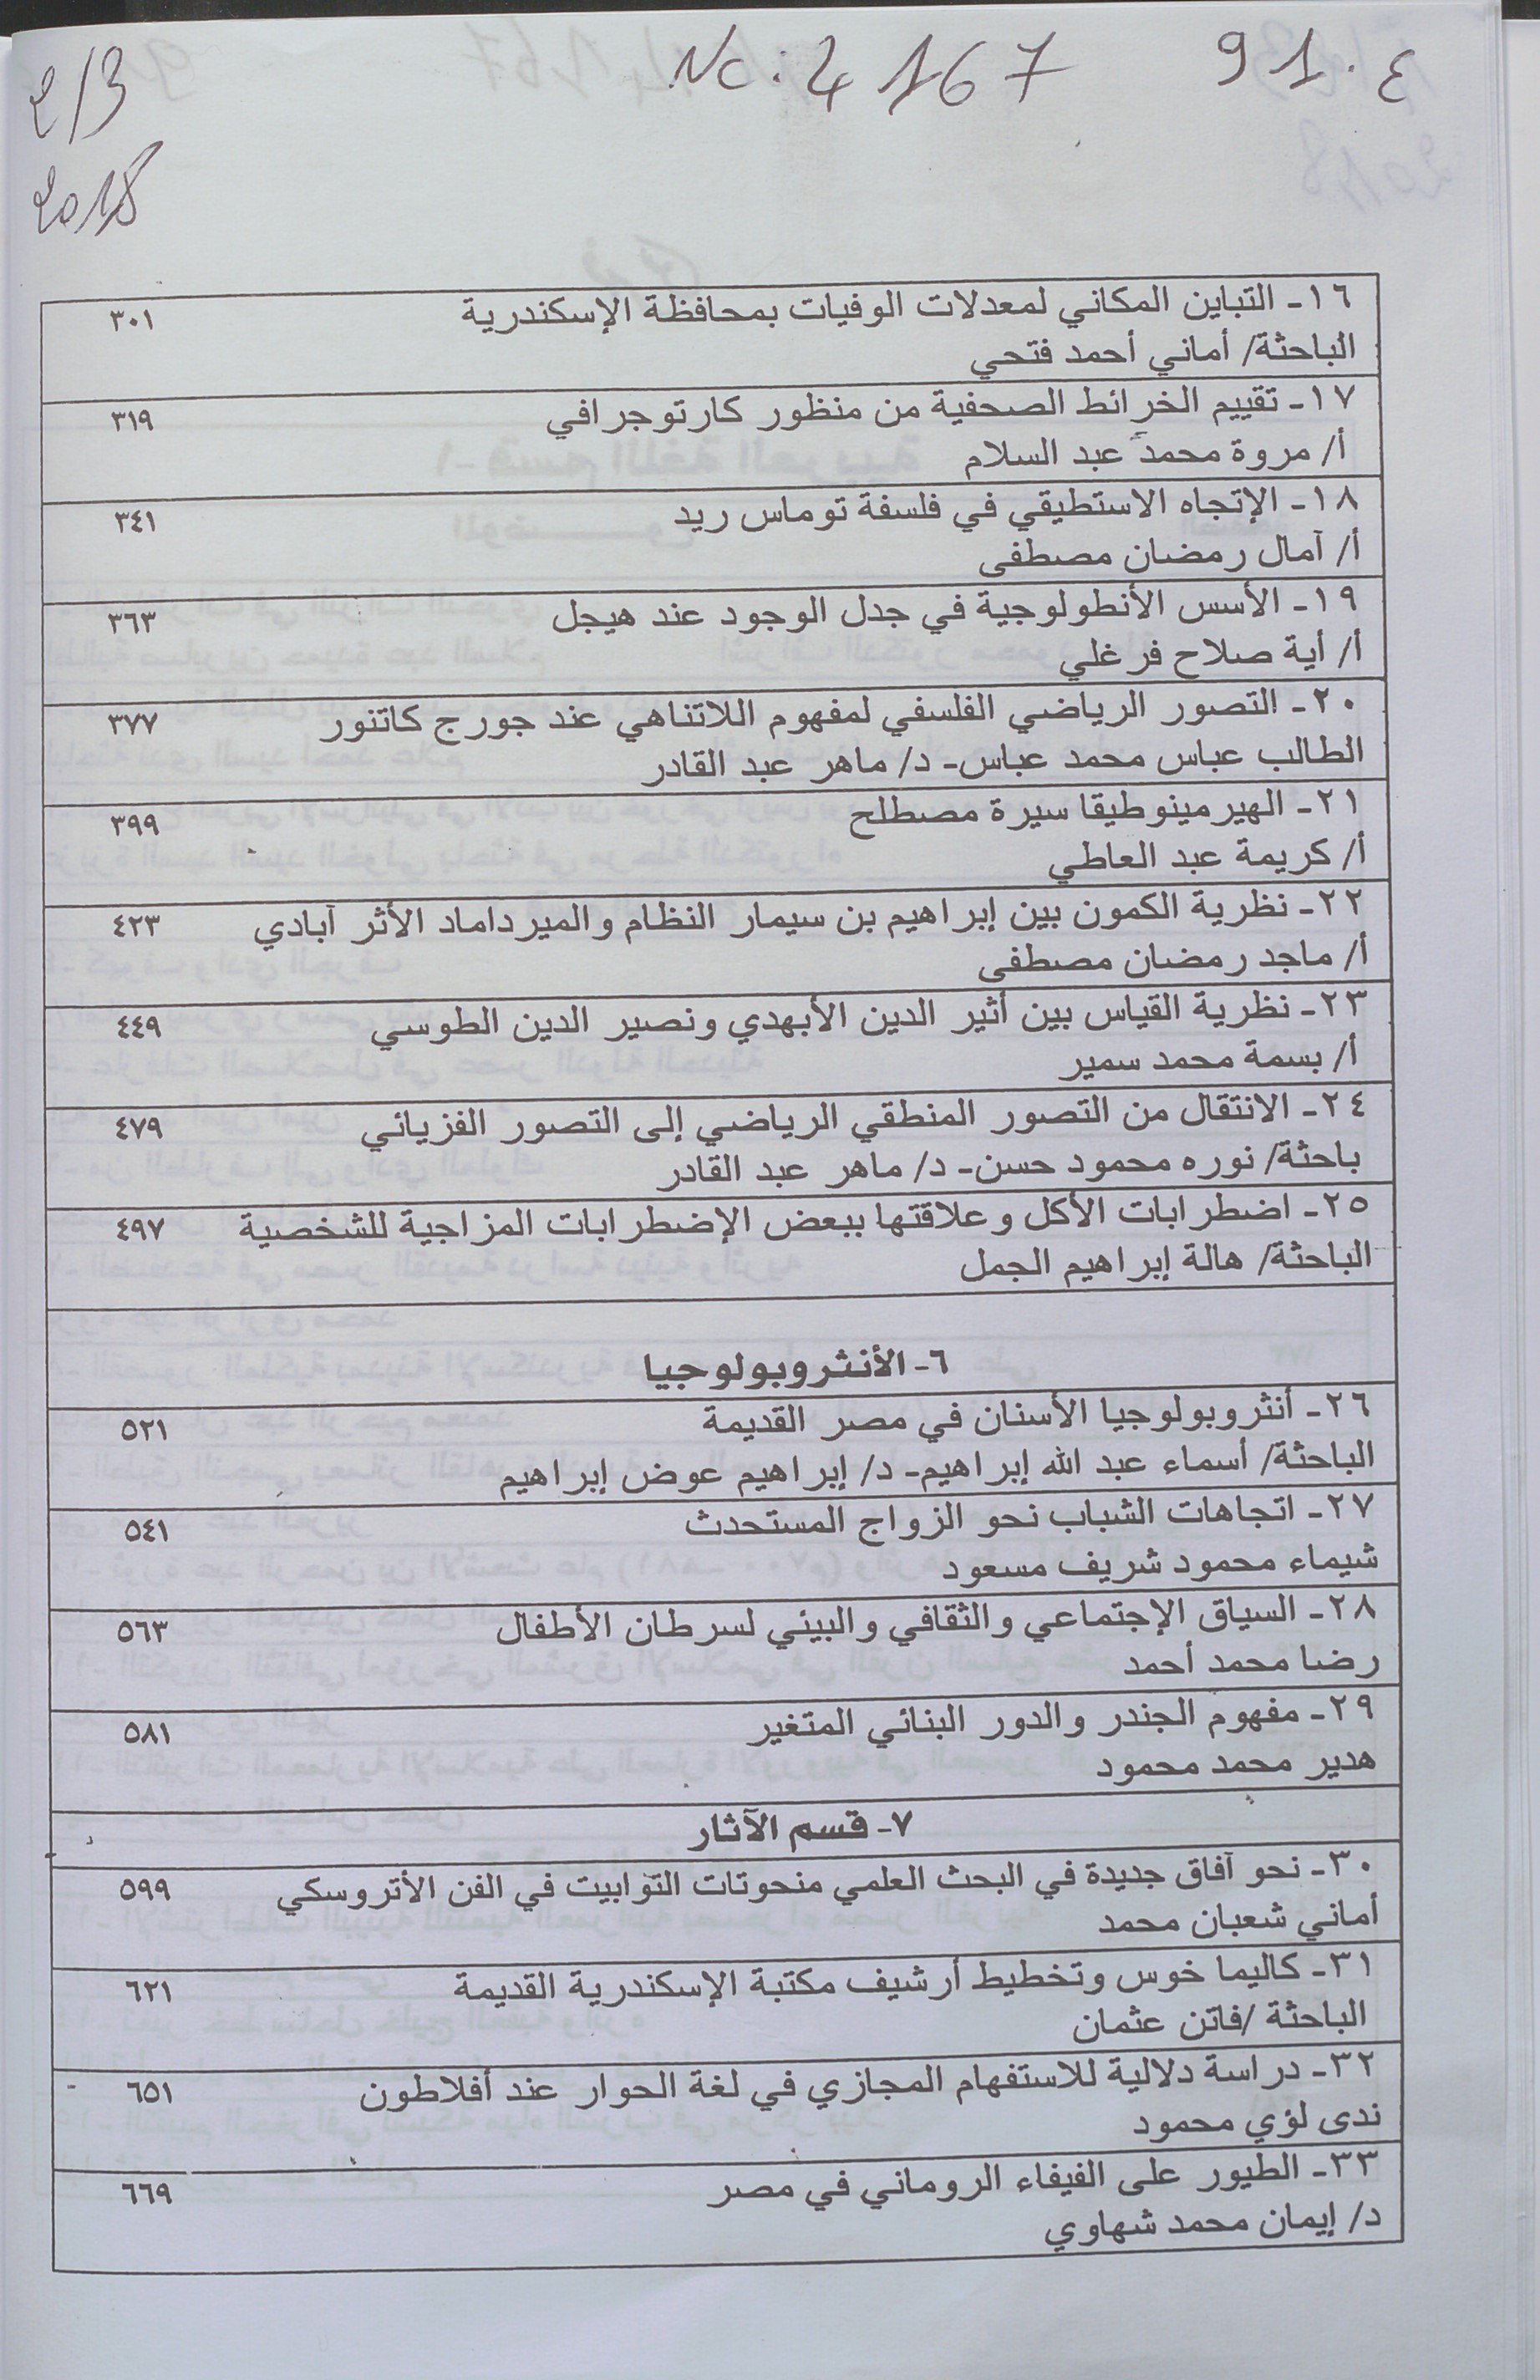 2/3
2018
No: 4 167
91.٤
١٦- التباين المكاني لمعدلات الوفيات بمحافظة الإسكندرية ٣٠١
الباحثة/ أماني أحمد فتحي
١٧- تقييم الخرائط الصحفية من منظور كارتوجرافي ٣١٩
أ/ مروة محمد عبد السلام
١٨- الإتجاه الاستطيقي في فلسفة توماس ريد ٣٤١
أ/ آمال رمضان مصطفى
١٩- الأسس الأنطولوجية في جدل الوجود عند هيجل ٣٦٣
أ/ أية صلاح فرغلي
٢٠- التصور الرياضي الفلسفي لمفهوم اللاتناهي عند جورج كانتور ٣٧٧
الطالب عباس محمد عباس- د/ ماهر عبد القادر
٢١- الهيرمينوطيقا سيرة مصطلح ٣٩٩
أ/ كريمة عبد العاطي
٢٢- نظرية الكمون بين إبراهيم بن سيمار النظام والميرداماد الأثر آبادي ٤٢٣
أ/ ماجد رمضان مصطفى
٢٣- نظرية القياس بين أثير الدين الأبهدي ونصير الدين الطوسي ٤٤٩
أ/ بسمة محمد سمير
٢٤- الانتقال من التصور المنطقي الرياضي إلى التصور الفزيائي ٤٧٩
باحثة/ نوره محمود حسن- د/ ماهر عبد القادر
٢٥- اضطرابات الأكل وعلاقتها ببعض الإضطرابات المزاجية للشخصية ٤٩٧
الباحثة/ هالة إبراهيم الجمل
٦- الأنثروبولوجيا
٢٦- أنثروبولوجيا الأسنان في مصر القديمة ٥٢١
الباحثة/ أسماء عبد الله إبراهيم- د/ إبراهيم عوض إبراهيم
٢٧- اتجاهات الشباب نحو الزواج المستحدث ٥٤١
شيماء محمود شريف مسعود
٢٨- السياق الإجتماعي والثقافي والبيئي لسرطان الأطفال ٥٦٣
رضا محمد أحمد
٢٩- مفهوم الجندر والدور البنائي المتغير ٥٨١
هدير محمد محمود
٧- قسم الآثار
٣٠- نحو آفاق جديدة في البحث العلمي منحوتات التوابيت في الفن الأتروسكي ٥٩٩
أماني شعبان محمد
٣١- كاليما خوس وتخطيط أرشيف مكتبة الإسكندرية القديمة ٦٢١
الباحثة /فاتن عثمان
٣٢- دراسة دلالية للاستفهام المجازي في لغة الحوار عند أفلاطون ٦٥١
ندى لؤي محمود
٣٣- الطيور على الفيفاء الروماني في مصر ٦٦٩
د/ إيمان محمد شهاوي